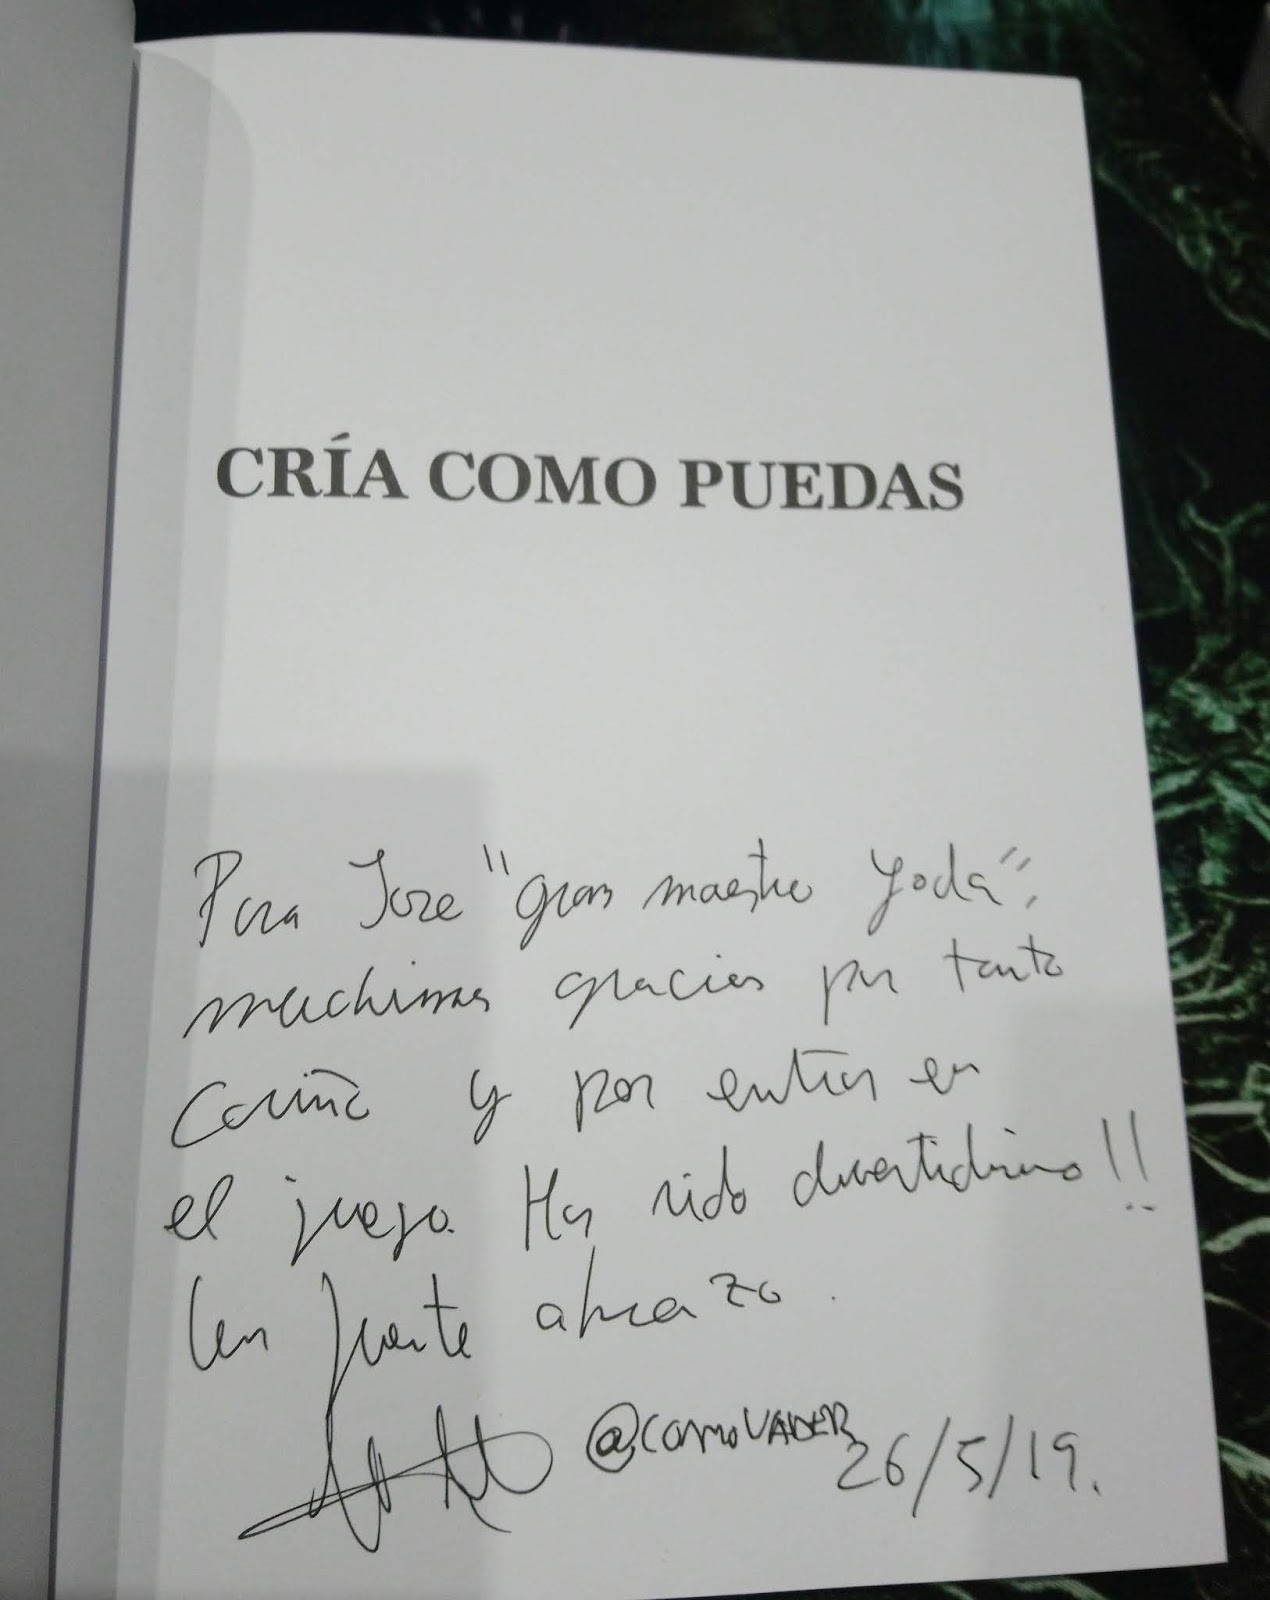 CRÍA COMO PUEDAS
Para Jose "gran maestro Yoda",
muchisimas gracias por tanto
cariño y por entrar en
el juego. Ha sido divertidisimo!!
Un fuerte abrazo.
@comoVADER
26/5/19.